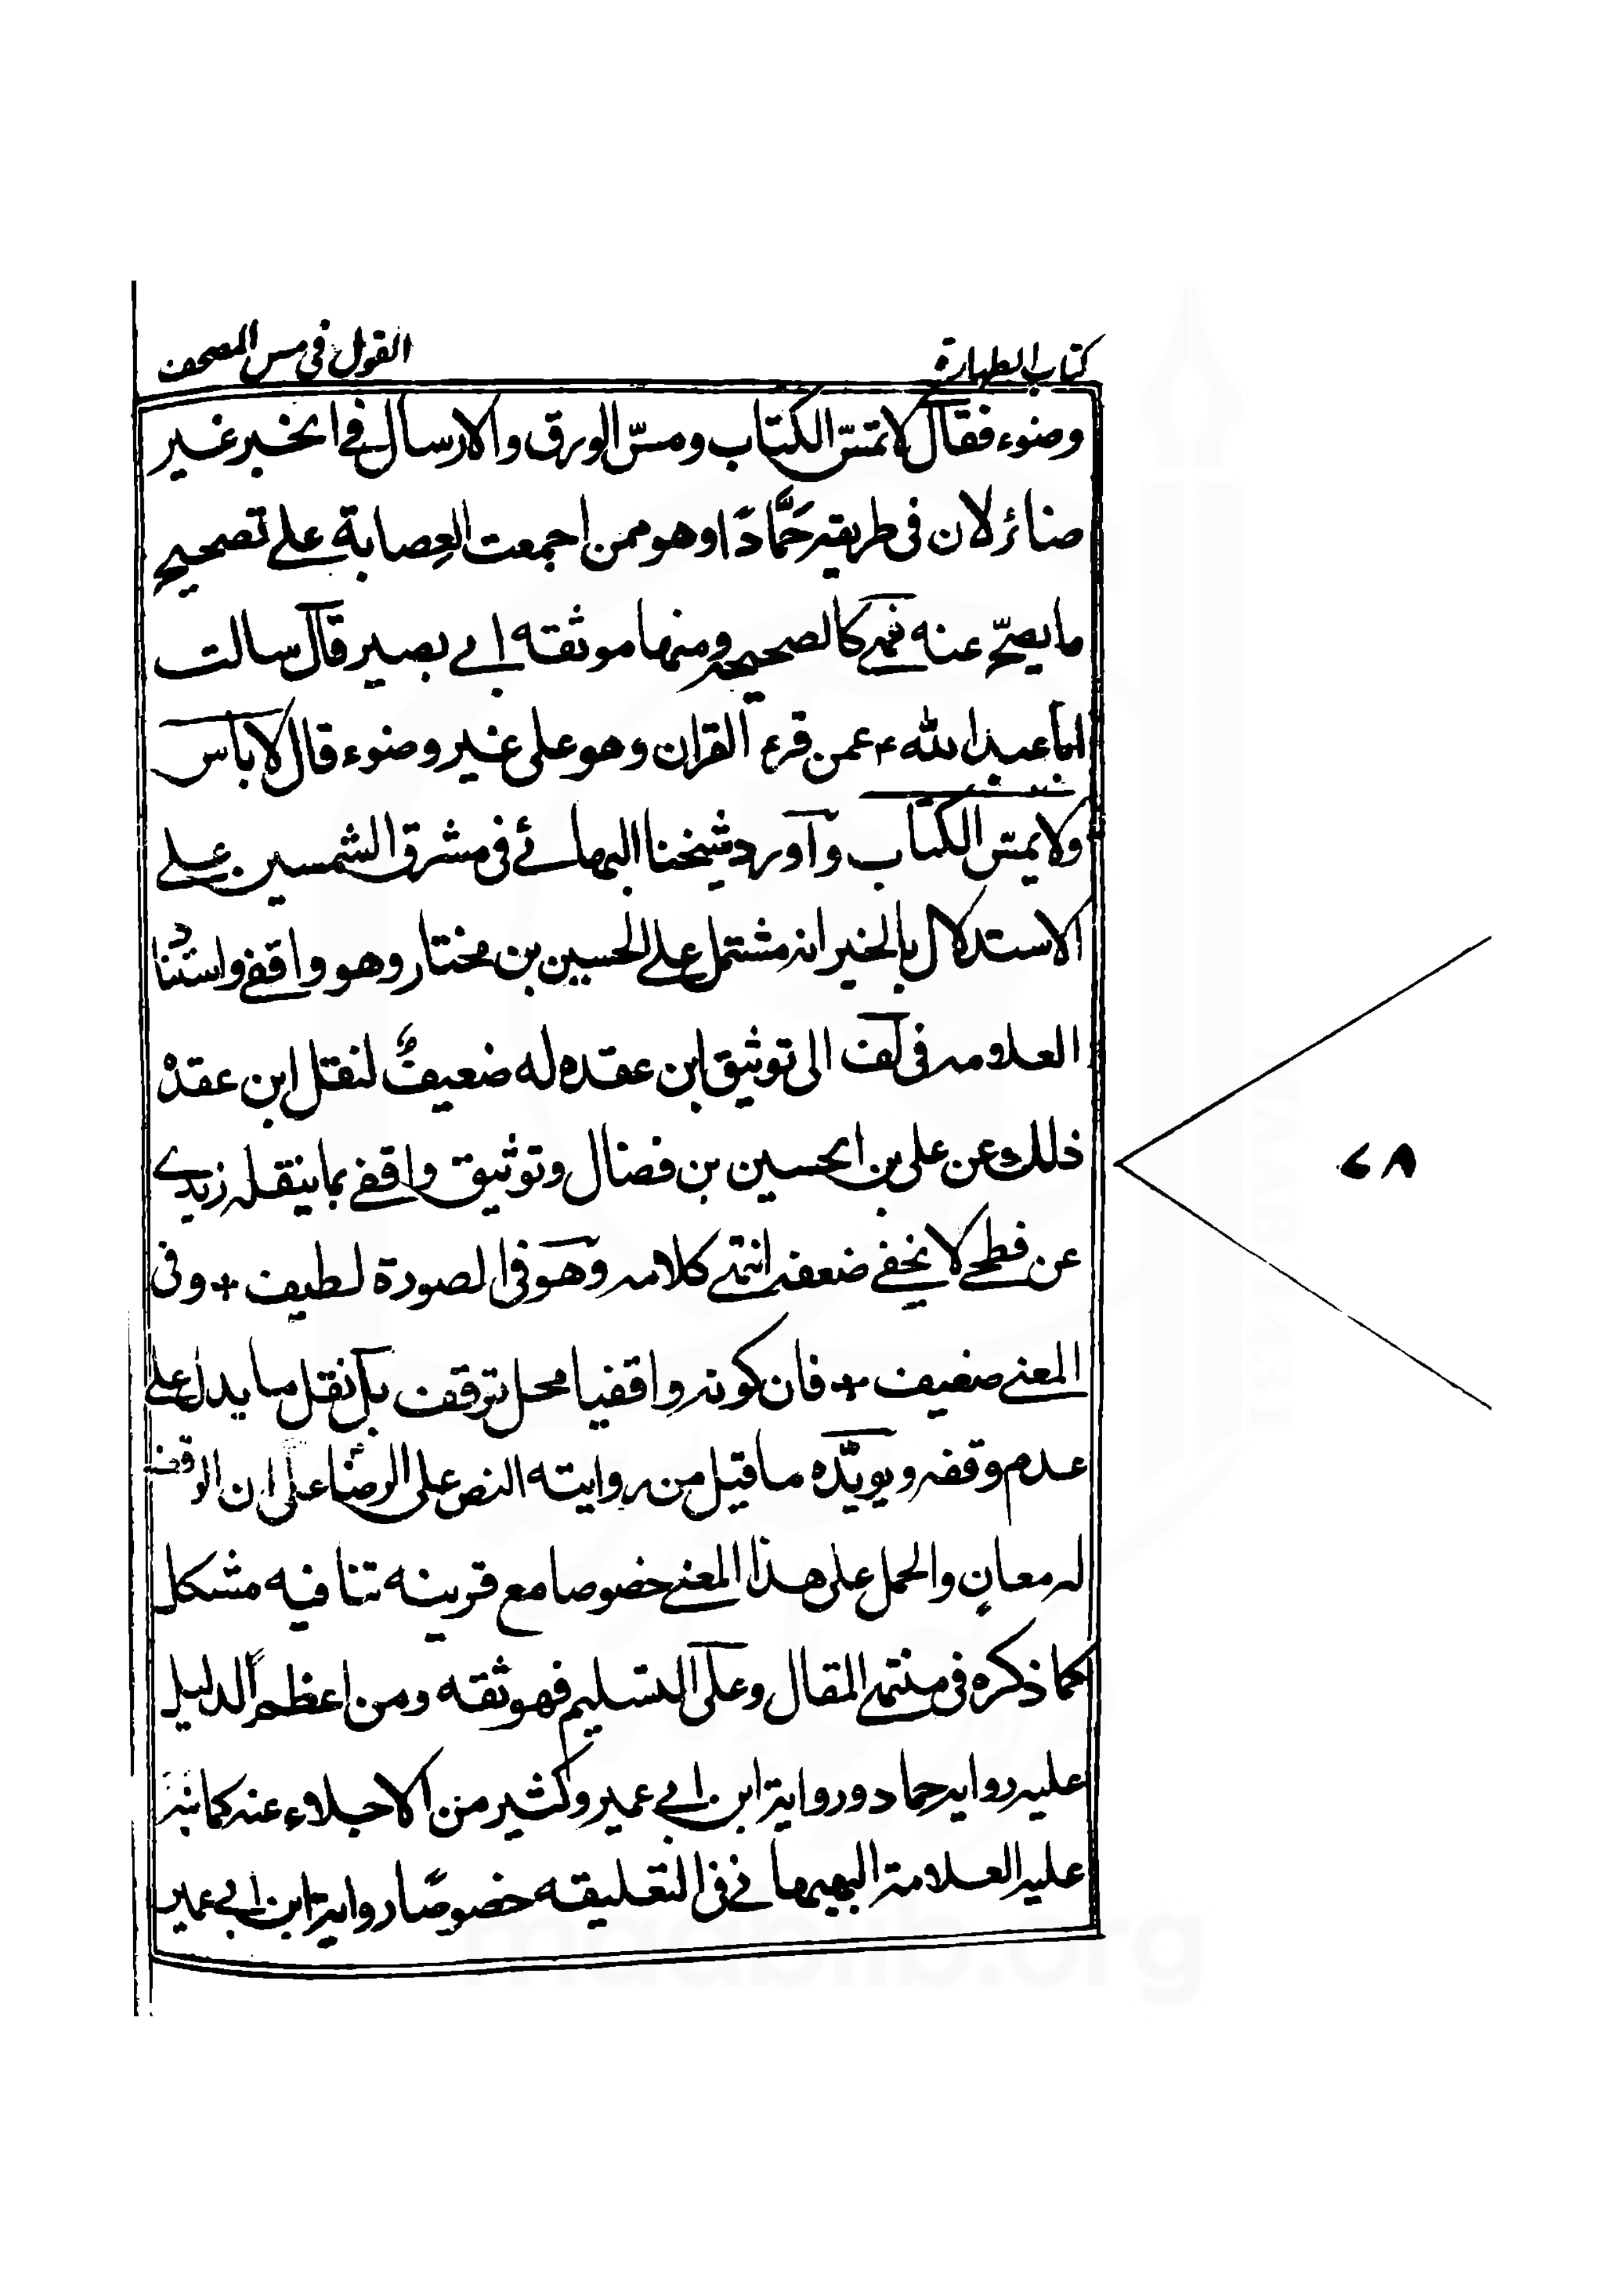 كتاب الطهارة
القول في مس المصحف
وضوء فقال لا تمسّ الكتاب ومسّ الورق والارسال في الخبر غير
ضائر لان في طريقه حَمَّادًا وهو ممن اجمعت العِصابة على تصحيح
ما يصحّ عنه فهي كالصحيحة ومنها موثقه ابي بصير قال سالت
ابا عبد الله ع عمن قرء القران وهو على غير وضوء قال لا باس
ولا يمسّ الكتاب وآورد شيخنا البهائي في مشرق الشمسين على
الاستدلال بالخبر انه مشتمل على الحسين بن مختار وهو واقفي واستناد
العلامه في لف الى توثيق ابن عقده له ضعيفٌ لنقل ابن عقده
ذلك عن علي بن الحسين بن فضال وتوثيق واقفي بما ينقله زيدي
عن فطحي لا يخفى ضعفه انتهى كلامه وهو في الصورة لطيف + وفى
المعنى ضعيف + فان كونه واقفيا محل توقف بل نقل ما يدل على
عدم وقفه ويويّده ما قيل من روايته النص على الرضا على ان الوقف
له معانٍ والحمل على هذا المعنى خصوصا مع قرينه تنافيه مشكل
كما ذكره في منتهى المقال وعلى التسليم فهو ثقه ومن اعظم الدليل
عليه روايه حماد ورواية ابن ابي عمير وكثير من الاجلاء عنه كما نبّه
عليه العلامة البهبهاني في التعليقه خصوصًا رواية ابن ابي عمير
٦٨
maablib.org